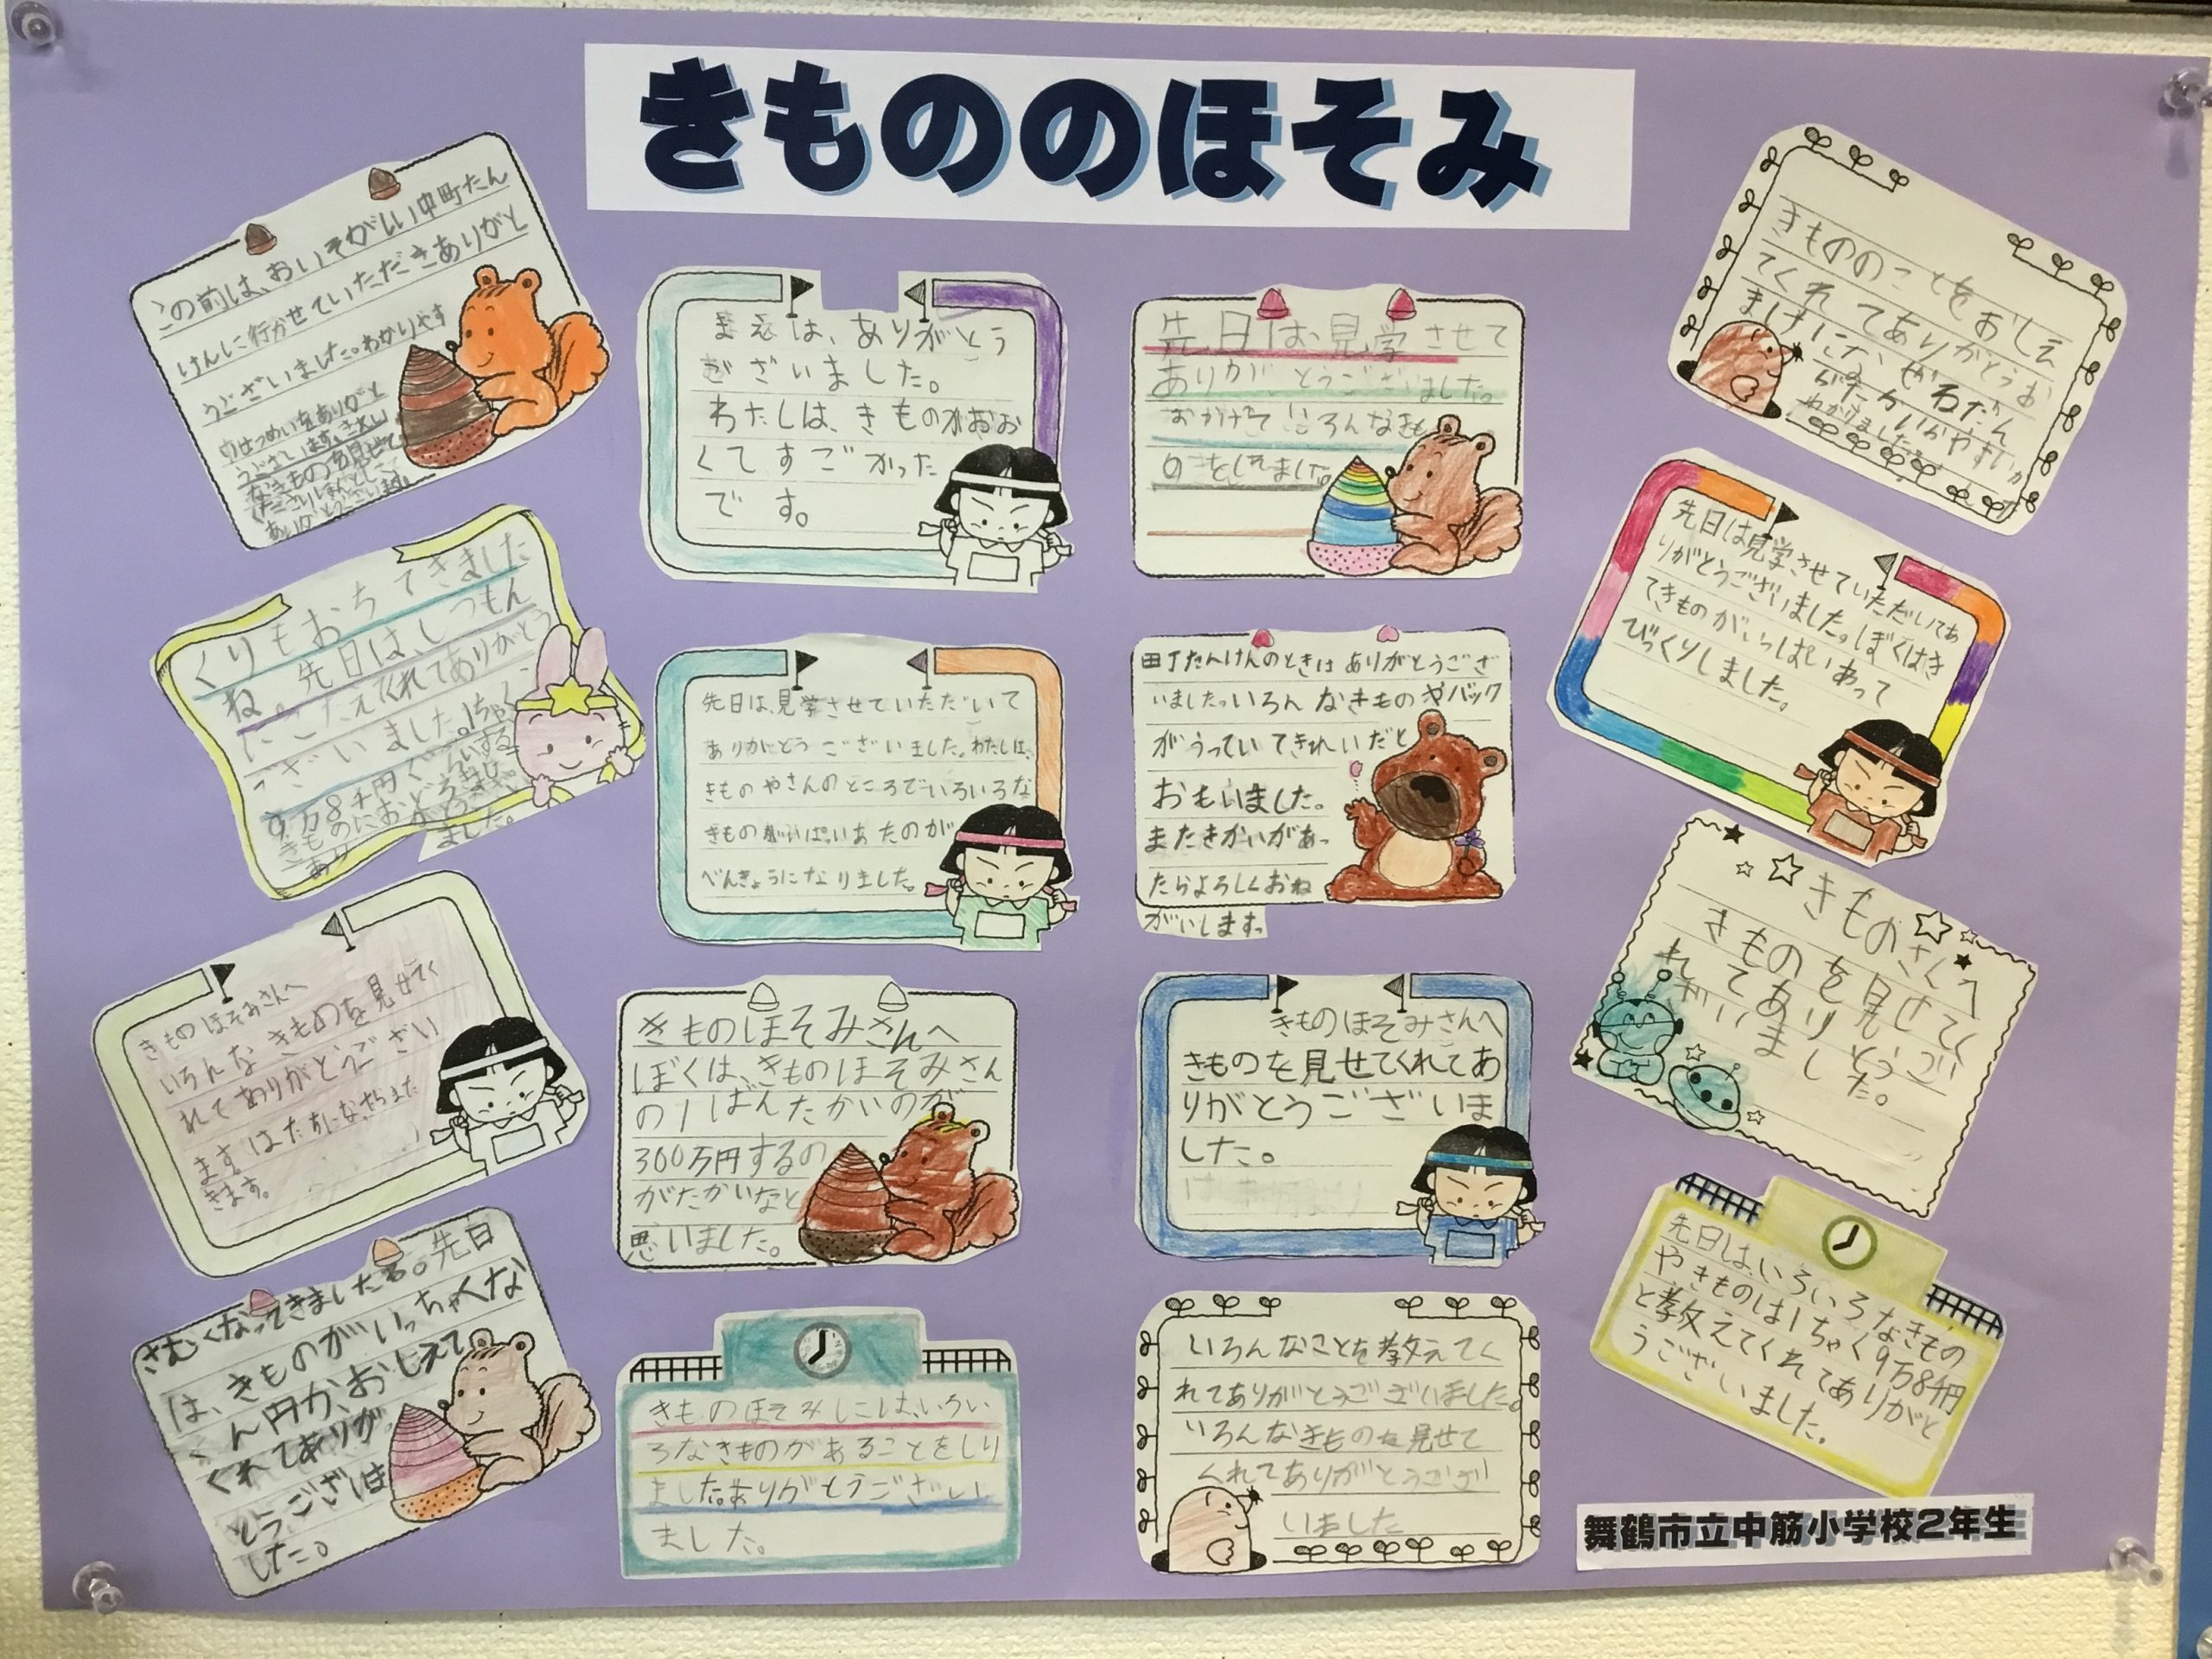 きもののほそみ
この前は、おいそがしい中町たん
けんに行かせていただきありがと
うございました。わかりやす
なきものを見せて
ありがとうございます。
くりもおちてきました
ね。先日は、しつもん
にこたえてくれてありがとう
ございました。1ちゃく
9万8千円ぐらいする
きものにおどろきま
ました。
きものほそみさんへ
いろんなきものを見せてく
れてありがとうござい
ます
きます。
さむくなってきましたね。先日
は、きものがいっちゃくな
ん円か、おしえて
くれてありが
とうござは
した。
は、ありがとう
ございました。
わたしは、きものがおお
くてすごかった
です。
先日は、見学させていただいて
ありがとうございました。わたしは、
きものやさんのところでいろいろな
きものがいぱいあたのが
べんきょうになりました。
きものほそみさんへ
ぼくは、きものほそみさん
の1ばんたかいのが
300万円するの
がたかいなと
思いました。
きものほそみには、いろい
ろなきものがあることをしり
ました。ありがとうござい
ました。
先日は、見学させて
ありがとうございました。
おかげでいろんなきも
のをしれました。
町たんけんのときはありがとうござ
いました。いろんなきものやバック
がうっていてきれいだと
おもいました。
またきかいがあっ
たらよろしくおね
がいします。
きものほそみさんへ
きものを見せてくれてあ
りがとうございま
した。
いろんなことを教えてく
れてありがとうございました。
いろんなきものを見せて
くれてありがとうござ
いました
きもののことをおしえ
てくれてありがとうお
先日は見学させていただいてあ
りがとうございました。ぼくはき
てきものがいっぱいあって
びっくりしました。
きものさんへ
きものを見せてく
れてありとうご
ざいました。
先日は、いろいろなきもの
やきものは1ちゃく9万8千円
と教えてくれてありがと
うございました。
舞鶴市立中筋小学校2年生